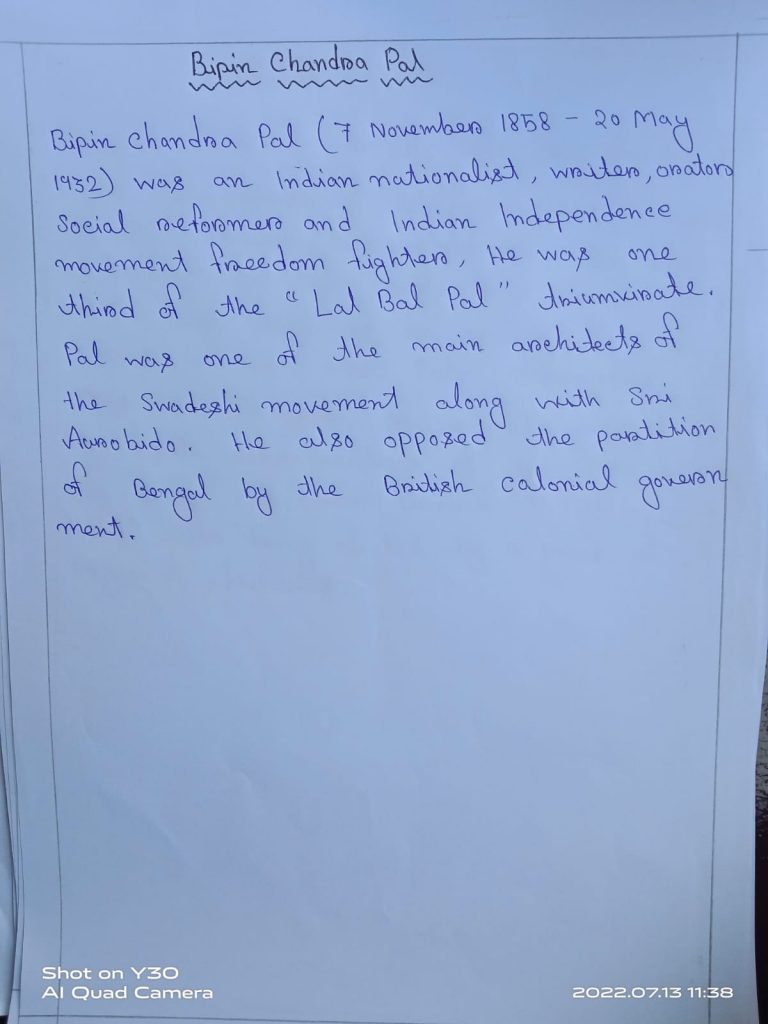 Bipin Chandra Pal
Bipin Chandra Pal (7 November 1858 - 20 May
1932) was an Indian nationalist, writer, orator
Social reformer and Indian Independence
movement freedom fighter, He was one
third of the "Lal Bal Pal" triumvirate.
Pal was one of the main architects of
the Swadeshi movement along with Sri
Aurobido. He also opposed the partition
of Bengal by the British calonial govern
ment.
Shot on Y30
AI Quad Camera
2022.07.13 11:38